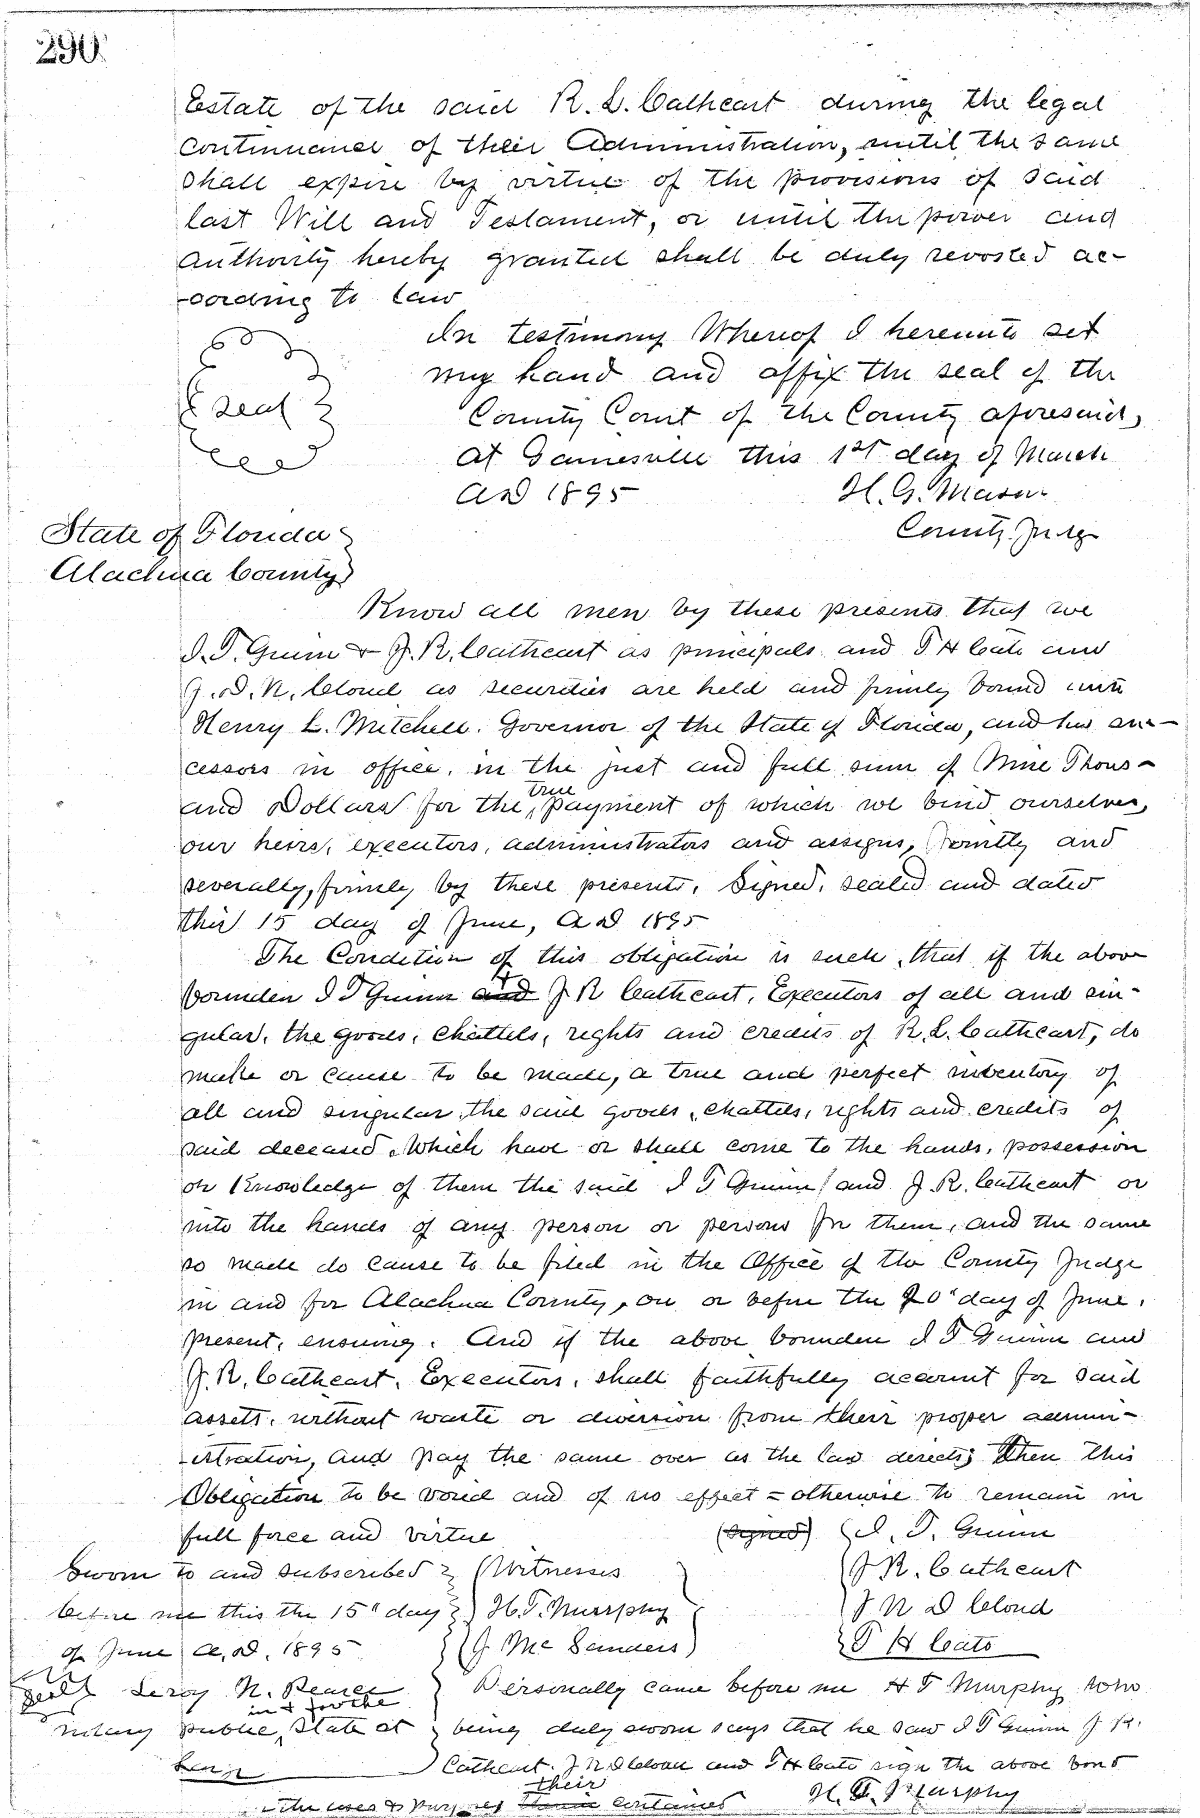 290
Estate of the said R. L. Cathcart during the legal
continuance of their Administration, until the same
shall expire by virtue of the provisions of said
last Will and Testament, or until the power and
authority hereby granted shall be duly revoked ac-
-cording to law
In testimony Whereof I hereunto set
my hand and affix the seal of the
(seal)
County Court of the County aforesaid,
at Gainesville this 1st day of March
AD 1895
H. G. Mason
County Judge
State of Florida
Alachua County
Know all men by these presents that we
I. T. Guinn & J. R. Cathcart as principals and T H Cato and
J. N. Cloud as securities are held and firmly bound unto
Henry L. Mitchell. Governor of the State of Florida, and his suc-
cessors in office, in the just and full sum of Nine Thous-
and Dollars for the true payment of which we bind ourselves,
our heirs, executors, administrators and assigns, jointly and
severally, firmly by these presents. Signed, sealed and dated
this 15 day of June, A D 1895
The Condition of this obligation is such, that if the above
bounden I T Guinn and + J R Cathcart, Executors of all and sin-
gular, the goods, chattels, rights and credits of R. L. Cathcart, do
make or cause to be made, a true and perfect inventory of
all and singular the said goods, chattels, rights and credits of
said deceased, which have or shall come to the hands, possession
or Knowledge of them the said I T Guinn and J. R. Cathcart or
into the hands of any person or persons for them, and the same
so made do cause to be filed in the Office of the County Judge
in and for Alachua County, on or before the 20" day of June,
present, ensuing. And if the above bounden I T Guinn and
J. R. Cathcart, Executors, shall faithfully account for said
assets, without waste or diversion from their proper admin-
-istration, and pay the same over as the law directs; then this
Obligation to be void and of no effect = otherwise to remain in
full force and virtue (signed) I. T. Guinn
Sworn to and subscribed (Witnesses J R. Cathcart
before me this the 15" day H. T. Murrphy J N D Cloud
of June A. D. 1895 J Mc Sanders) T H Cato
Seal Leroy N. Pearce Personally came before me H T Murphy who
in & for the
notary public, State at being duly sworn says that he saw I T Guinn J R.
Large Cathcart. J N D Cloud and T H Cato sign the above bond
their
the uses & purposes contained H. T. Murphy